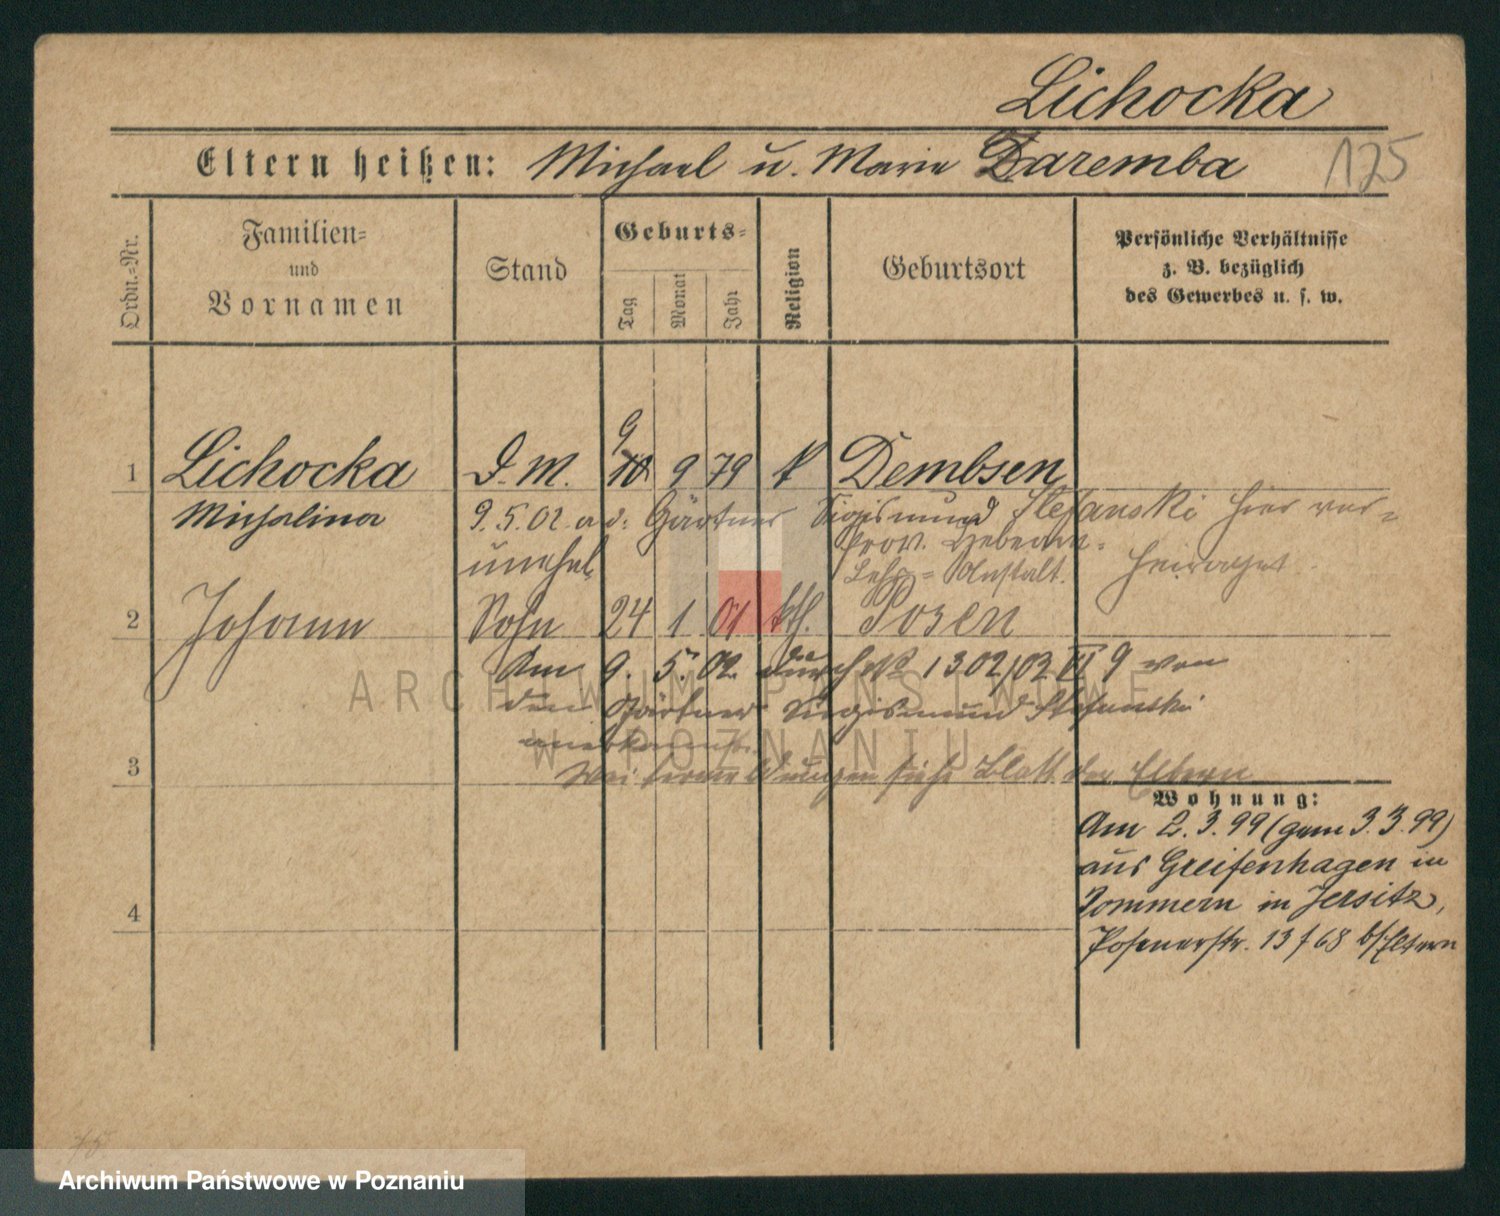 Lichocka
Eltern heißen: Michael u. Marie Daremba 175
Ordn.=Nr.
Familien=
und
Vornamen
Stand
Geburts=
Tag
Monat
Jahr
Religion
Geburtsort
Persönliche Verhältnisse
z. B. bezüglich
des Gewerbes u. s. w.
9
1 Lichocka D. M. 10 9 79 k Dembsen
Michalina 9.5.02 a d: Gärtner Sigismund Stefanski hier ver=
heiratet.
unehel. Prov. Hebeam.=
Lehr=Anstalt.
2 Johann Sohn 24 1 01 kth. Posen
Am 9. 5. 02. durch 1302/02 VI 9 von
dem Gärtner Sigismund Stefanski
anerkannt.
3 siehe Blatt der Eltern
Wohnung:
Am 2.3.99 (gem 3.3.99)
aus Greifenhagen in
Pommern in Jersitz,
4 Posenerstr. 13/68 b/Eltern
ARCHIWUM PAŃSTWOWE
W POZNANIU
Archiwum Państwowe w Poznaniu